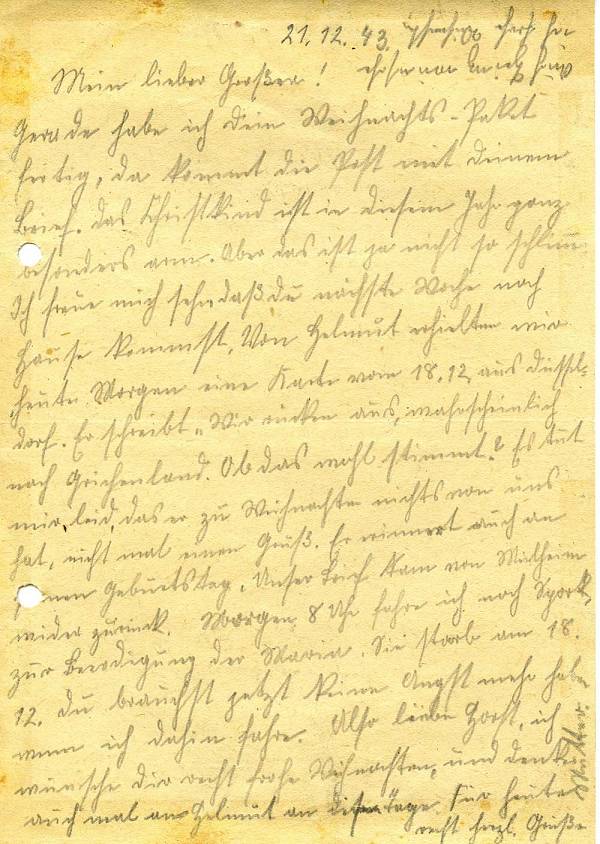 21.12.43.
Mein lieber Großer!
Gerade habe ich dein Weihnachts-Paket
fertig, da kommt die Post mit deinem
Brief. Das Christkind ist in diesem Jahr ganz
besonders arm. Aber das ist ja nicht so schlimm
Ich freue mich sehr, daß du nächste Woche nach
Hause kommst. Von Helmut erhielten wir
heute Morgen eine Karte vom 18.12. aus Düssel-
dorf. Er schreibt „Wir rücken aus, wahrscheinlich
nach Grichenland. Ob das wohl stimmt? Es tut
mir leid, das er zu Weihnachten nichts von uns
hat, nicht mal einen Gruß. Er erinnert auch an
Geburtstag. Unser Brief kam von Mülheim
wider zurück. Morgen 8 Uhr fahre ich nach Spork,
zur Beerdigung der Maria. Sie starb am 18.
12. Du brauchst jetzt keine Angst mehr haben
wenn ich dahin fahre. Also lieber Horst, ich
wünsche dir recht frohe Weihnachten, und denke
auch mal an Helmut an disen Tage. Für heute
recht herzl. Grüße
Mutter.